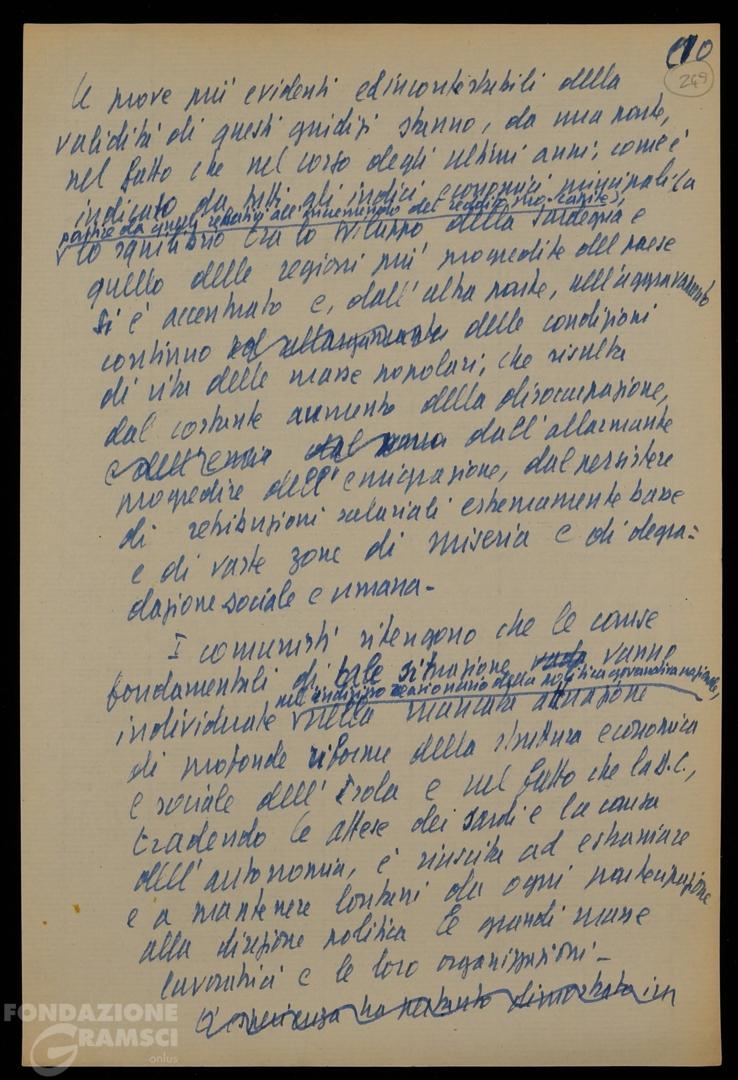 10
249
Le prove più evidenti ed incontestabili della
validità di questi giudizi stanno, da una parte,
nel fatto che nel corso degli ultimi anni, come è
indicato da tutti gli indici economici principali (a
partire da quelli relativi all'incremento del reddito pro-capite),
lo squilibrio tra lo sviluppo della Sardegna e
quello delle regioni più progredite del paese
si è accentuato e, dall'altra parte, nell'aggravamento
continuo ed allargamento delle condizioni
di vita delle masse popolari, che risulta
dal costante aumento della disoccupazione,
e dell' dal dall'allarmante
progredire dell'emigrazione, dal persistere
di retribuzioni salariali estremamente basse
e di vaste zone di miseria e di degra=
dazione sociale e umana-
I comunisti ritengono che le cause
fondamentali di tale situazione vada vanno
nell'indirizzo reazionario della politica governativa nazionale,
individuate nella mancata attuazione
di profonde riforme della struttura economica
e sociale dell'Isola e nel fatto che la D.C.,
tradendo le attese dei sardi e la causa
dell'autonomia, è riuscita ad estraniare
e a mantenere lontani da ogni partecipazione
alla direzione politica le grandi masse
lavoratrici e le loro organizzazioni-
L'esperienza ha pertanto dimostrato in
FONDAZIONE
GRAMSCI
onlus